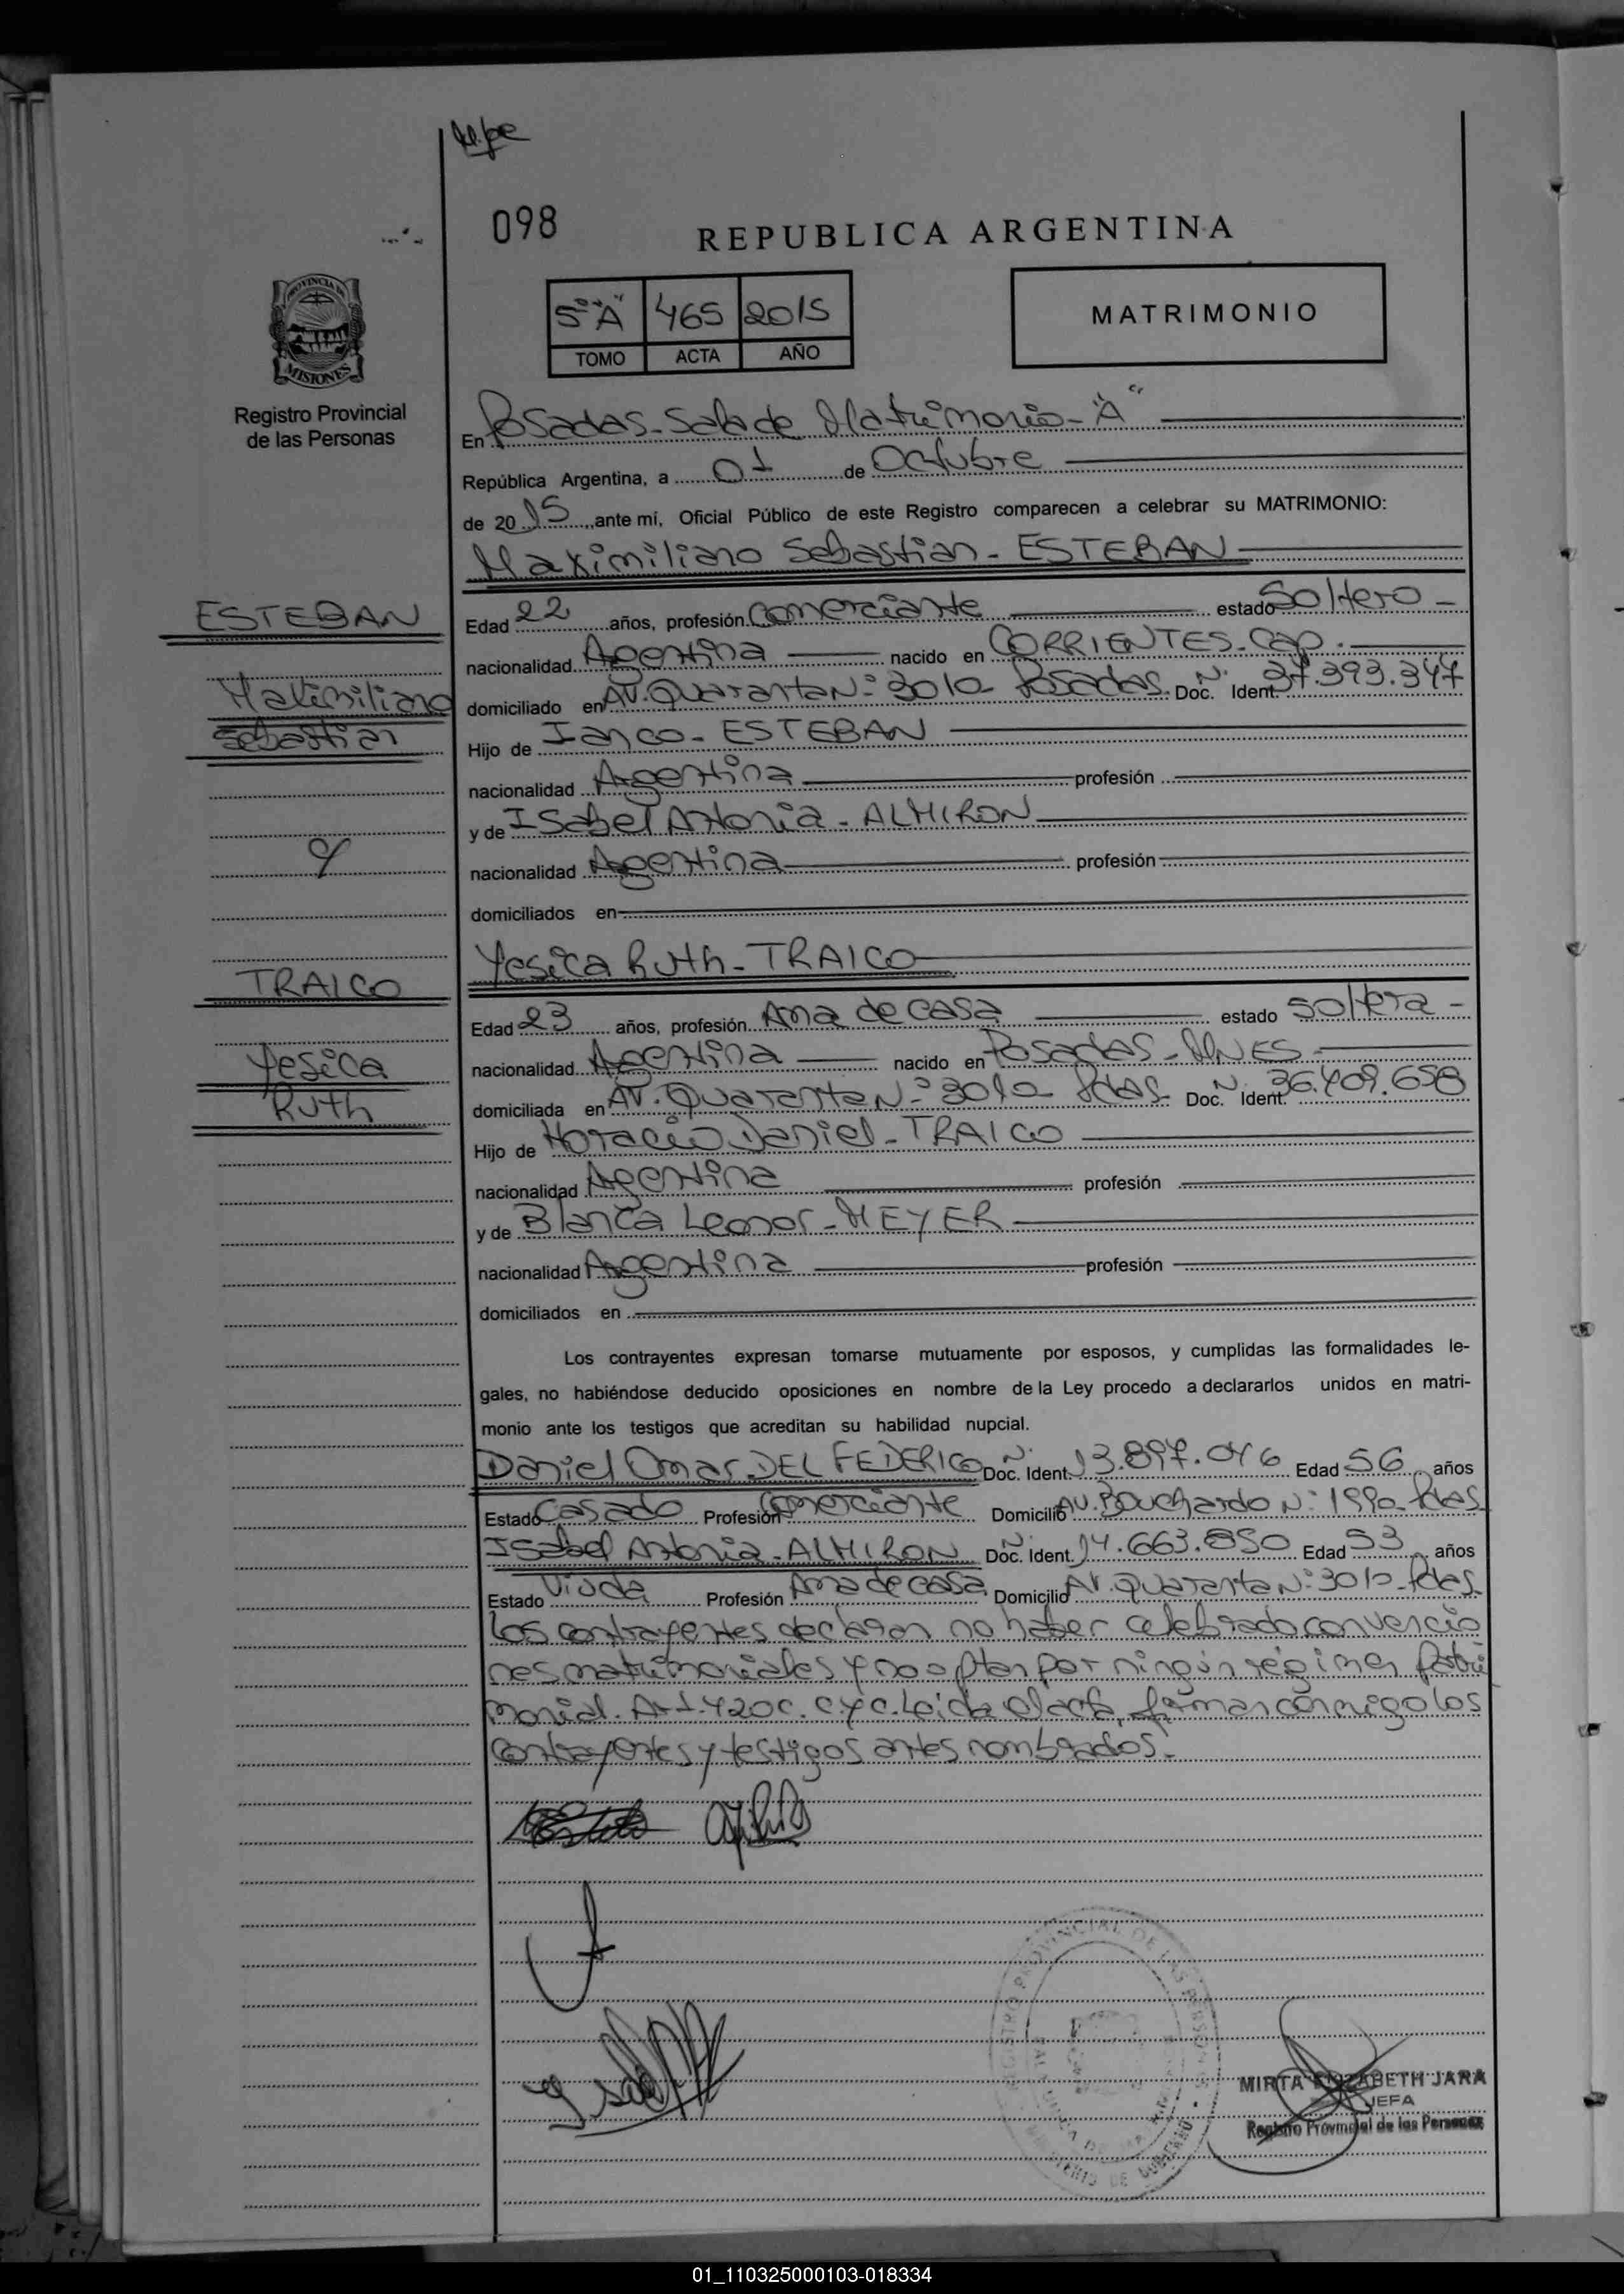 098
REPUBLICA ARGENTINA
5º "A" 465 2015
TOMO ACTA AÑO
MATRIMONIO
PROVINCIA DE
MISIONES
Registro Provincial
de las Personas
En Posadas - Sala de Matrimonio - "A"
República Argentina, a 01 de Octubre
de 2015, ante mí, Oficial Público de este Registro comparecen a celebrar su MATRIMONIO:
Maximiliano Sebastian - ESTEBAN
ESTEBAN
Maximiliano
Sebastian
Edad 22 años, profesión Comerciante estado Soltero -
nacionalidad Argentina nacido en CORRIENTES - Cap.
domiciliado en AV. Quaranta Nº 3010 - Posadas. Doc. Ident. Nº 37.393.347
Hijo de Ianco - ESTEBAN
nacionalidad Argentina profesión
y de Isabel Antonia - ALMIRON
nacionalidad Argentina profesión
domiciliados en
y
Yesica Ruth - TRAICO
TRAICO
Yesica
Ruth
Edad 23 años, profesión Ama de casa estado soltera -
nacionalidad Argentina nacido en Posadas - MNES -
domiciliada en AV. Quaranta Nº 3010 - Pdas. Doc. Ident. Nº 36.409.658
Hijo de Horacio Daniel - TRAICO
nacionalidad Argentina profesión
y de Blanca Leonor - MEYER
nacionalidad Argentina profesión
domiciliados en
Los contrayentes expresan tomarse mutuamente por esposos, y cumplidas las formalidades le-
gales, no habiéndose deducido oposiciones en nombre de la Ley procedo a declararlos unidos en matri-
monio ante los testigos que acreditan su habilidad nupcial.
Daniel Omar DEL FEDERICO Doc. Ident. Nº 13.897.046 Edad 56 años
Estado Casado Profesión Comerciante Domicilio AV. Bouchardo Nº 1990 - Pdas
Isabel Antonia - ALMIRON Doc. Ident. Nº 14.663.850 Edad 53 años
Estado Viuda Profesión Ama de casa Domicilio AV. Quaranta Nº 3010 - Pdas.
Los contrayentes declaran no haber celebrado convencio
nes matrimoniales y no optan por ningún régimen patri
monial. Art. 420 C. C. y C. Leída el acta, firman conmigo los
contrayentes y testigos antes nombrados.
REGISTRO PROVINCIAL DE LAS PERSONAS
MINISTERIO DE GOBIERNO
MIRTA ELIZABETH JARA
JEFA
Registro Provincial de las Personas
01_110325000103-018334